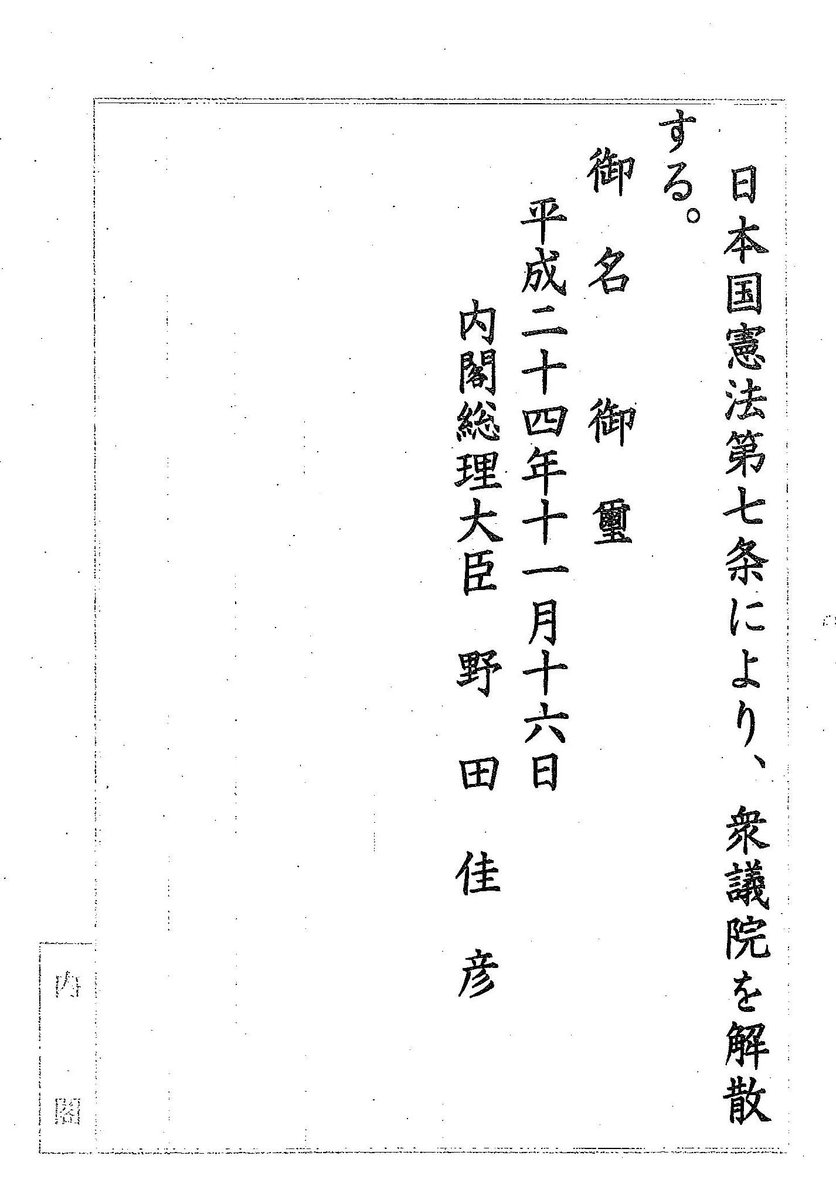 日本国憲法第七条により、衆議院を解散
する。
御名　御璽
平成二十四年十一月十六日
内閣総理大臣　野田佳彦
内閣